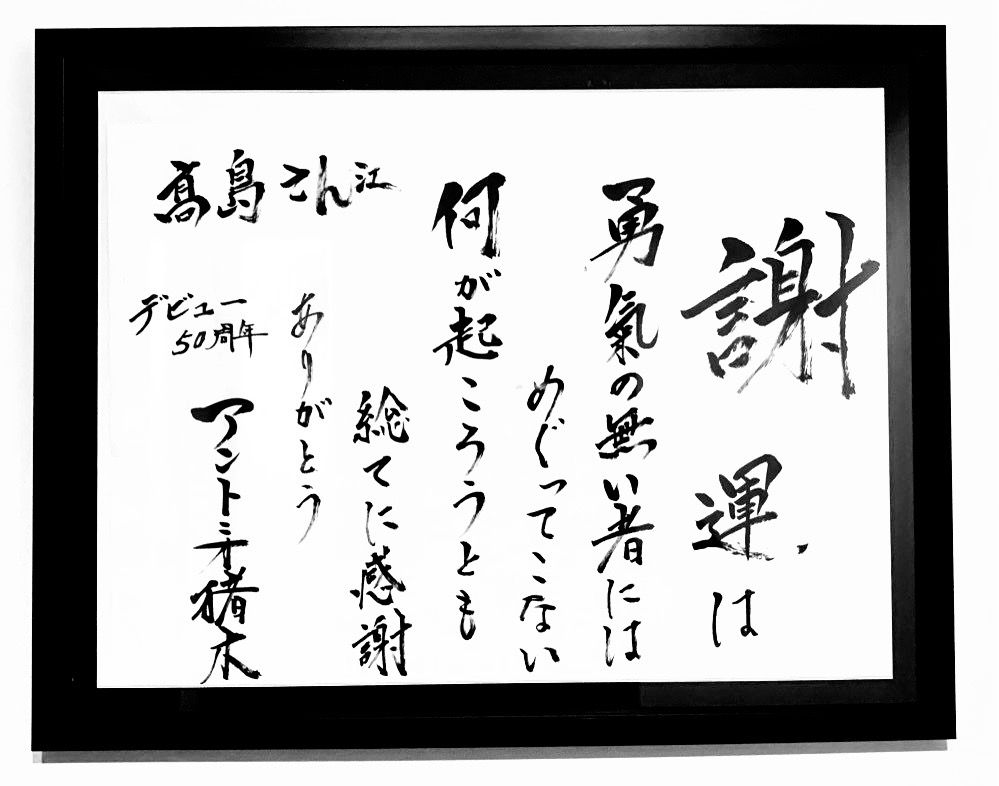 謝 運は
勇氣の無い者には
めぐってこない
何が起ころうとも
総てに感謝
ありがとう
髙島さん江
デビュー
50周年
アントニオ猪木